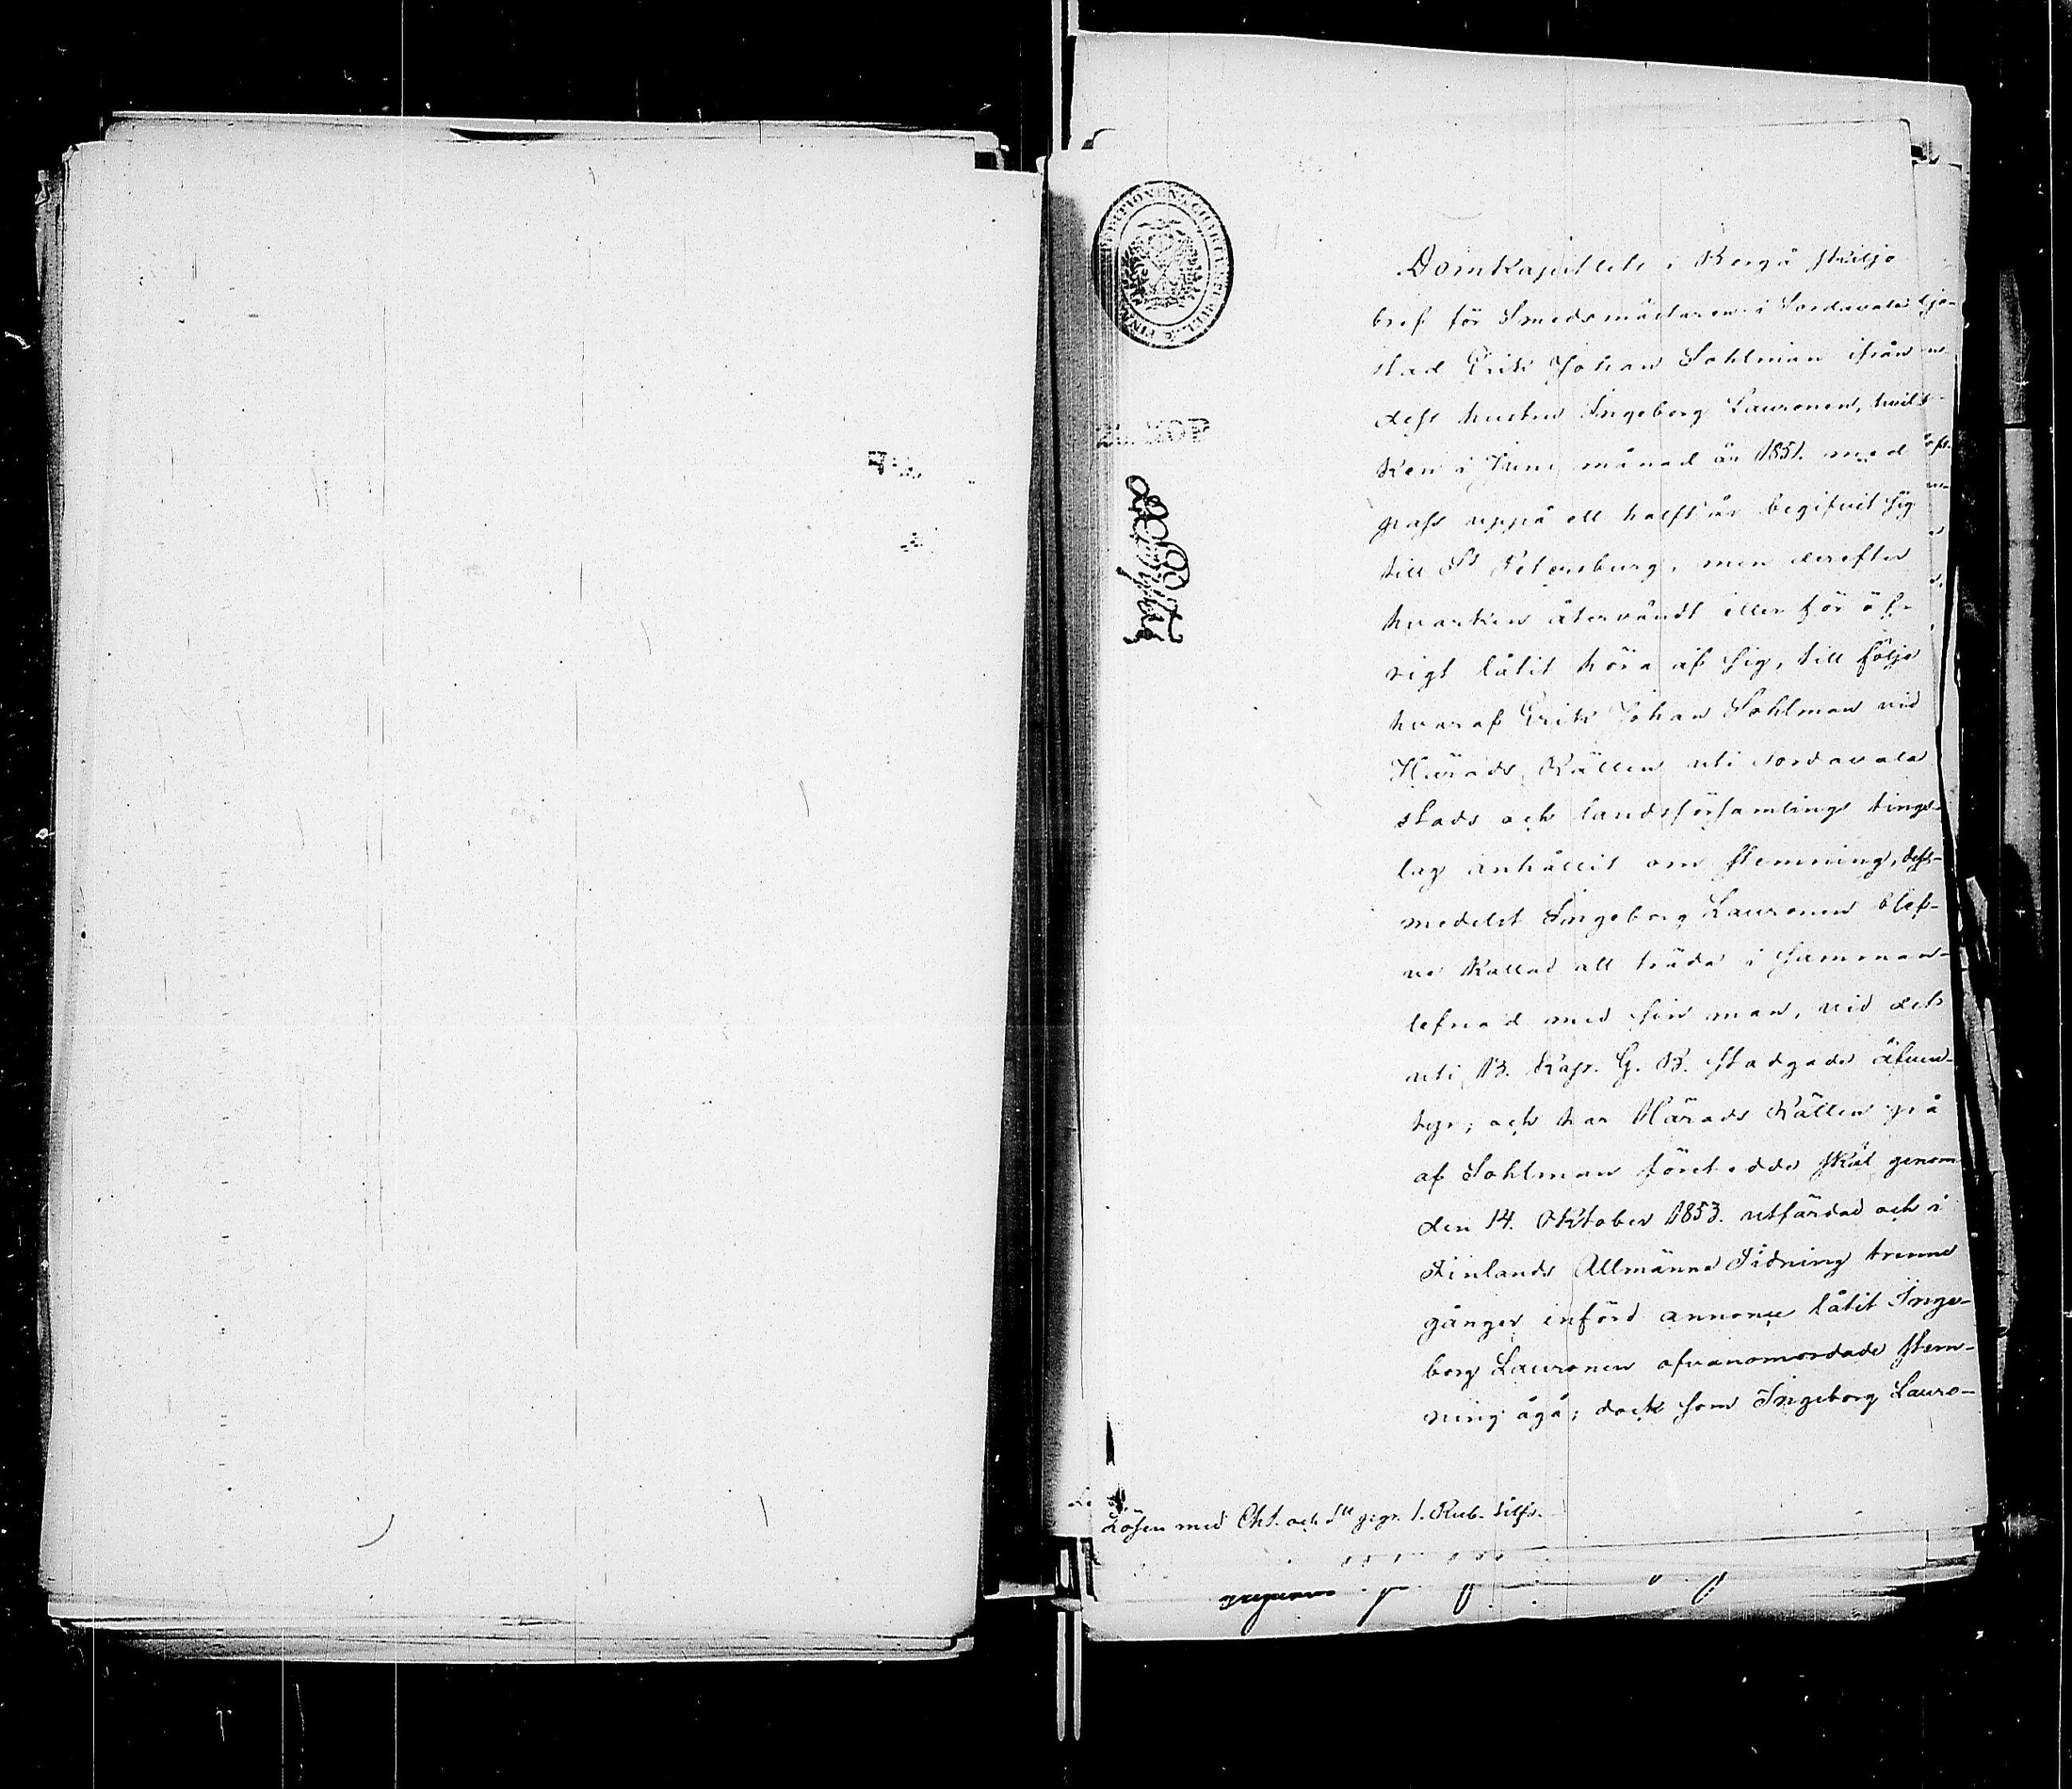 Domkapitlets i Borgå skiljo
bref för Smedsmästaren i Sordavala
stad Erik Johan Sohlman ifrån
dess hustru Ingeborg Lauronen, hvil-
ken i Juni månad år 1851. med
pass uppå ett halft år begifvit sig
till St Petersburg, men derefter
hvarken återvändt eller för öf-
rigt låtit höra af sig, till följe
hvaraf Erik Johan Sohlman vid
Härads Rätten uti Sordavala
stads och landsförsamlings tings-
lag anhållit om stemning, dess-
medelst Ingeborg Lauronen blef-
ve kallad att träda i samman-
lefnad med sin man, vid det
uti 13. Kap. G. B. stadgade äfven-
tyr; och har Härads Rätten på
af Sohlman företedde skäl genom
den 14. Oktober 1853. utfärdad och i
Finlands Allmänna Tidning trenne
gånger införd annonce låtit Inge-
borg Lauronen ofvanomordade stem-
ning ågå; dock som Ingeborg Lauro-
Lösen med Cht. och gr. 1. Rub. silfr.